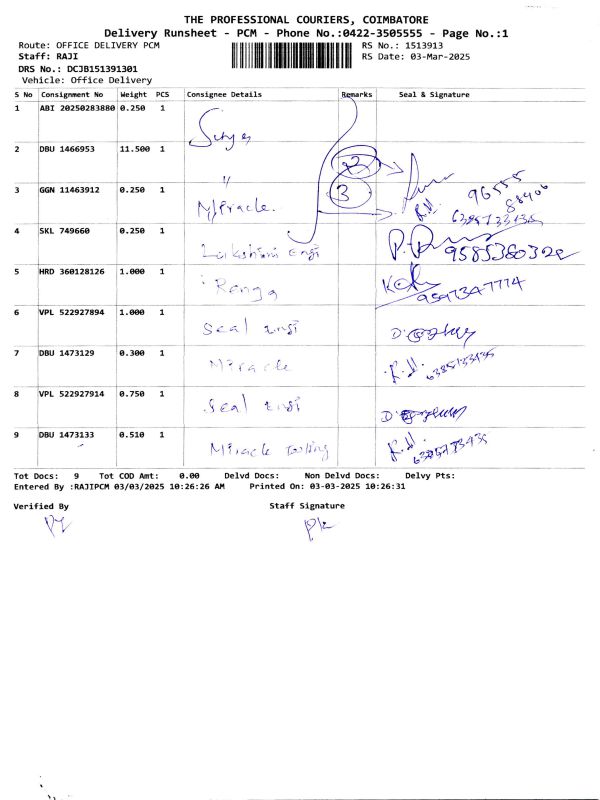 THE PROFESSIONAL COURIERS, COIMBATORE
Delivery Runsheet - PCM - Phone No.:0422-3505555 - Page No.:1
Route: OFFICE DELIVERY PCM RS No.: 1513913
Staff: RAJI RS Date: 03-Mar-2025
DRS No.: DCJB151391301
Vehicle: Office Delivery
S No Consignment No Weight PCS Consignee Details Remarks Seal & Signature
1 ABI 20250283880 0.250 1
2 DBU 1466953 11.500 1 " 2
3 GGN 11463912 0.250 1 Miracle. 3
4 SKL 749660 0.250 1 Lakshmi engi
5 HRD 360128126 1.000 1 Renga 9597347774
6 VPL 522927894 1.000 1 Seal engi
7 DBU 1473129 0.300 1 Miracle
8 VPL 522927914 0.750 1 Seal engi
9 DBU 1473133 0.510 1 Miracle tooling
Tot Docs: 9 Tot COD Amt: 0.00 Delvd Docs: Non Delvd Docs: Delvy Pts:
Entered By :RAJIPCM 03/03/2025 10:26:26 AM Printed On: 03-03-2025 10:26:31
Verified By Staff Signature